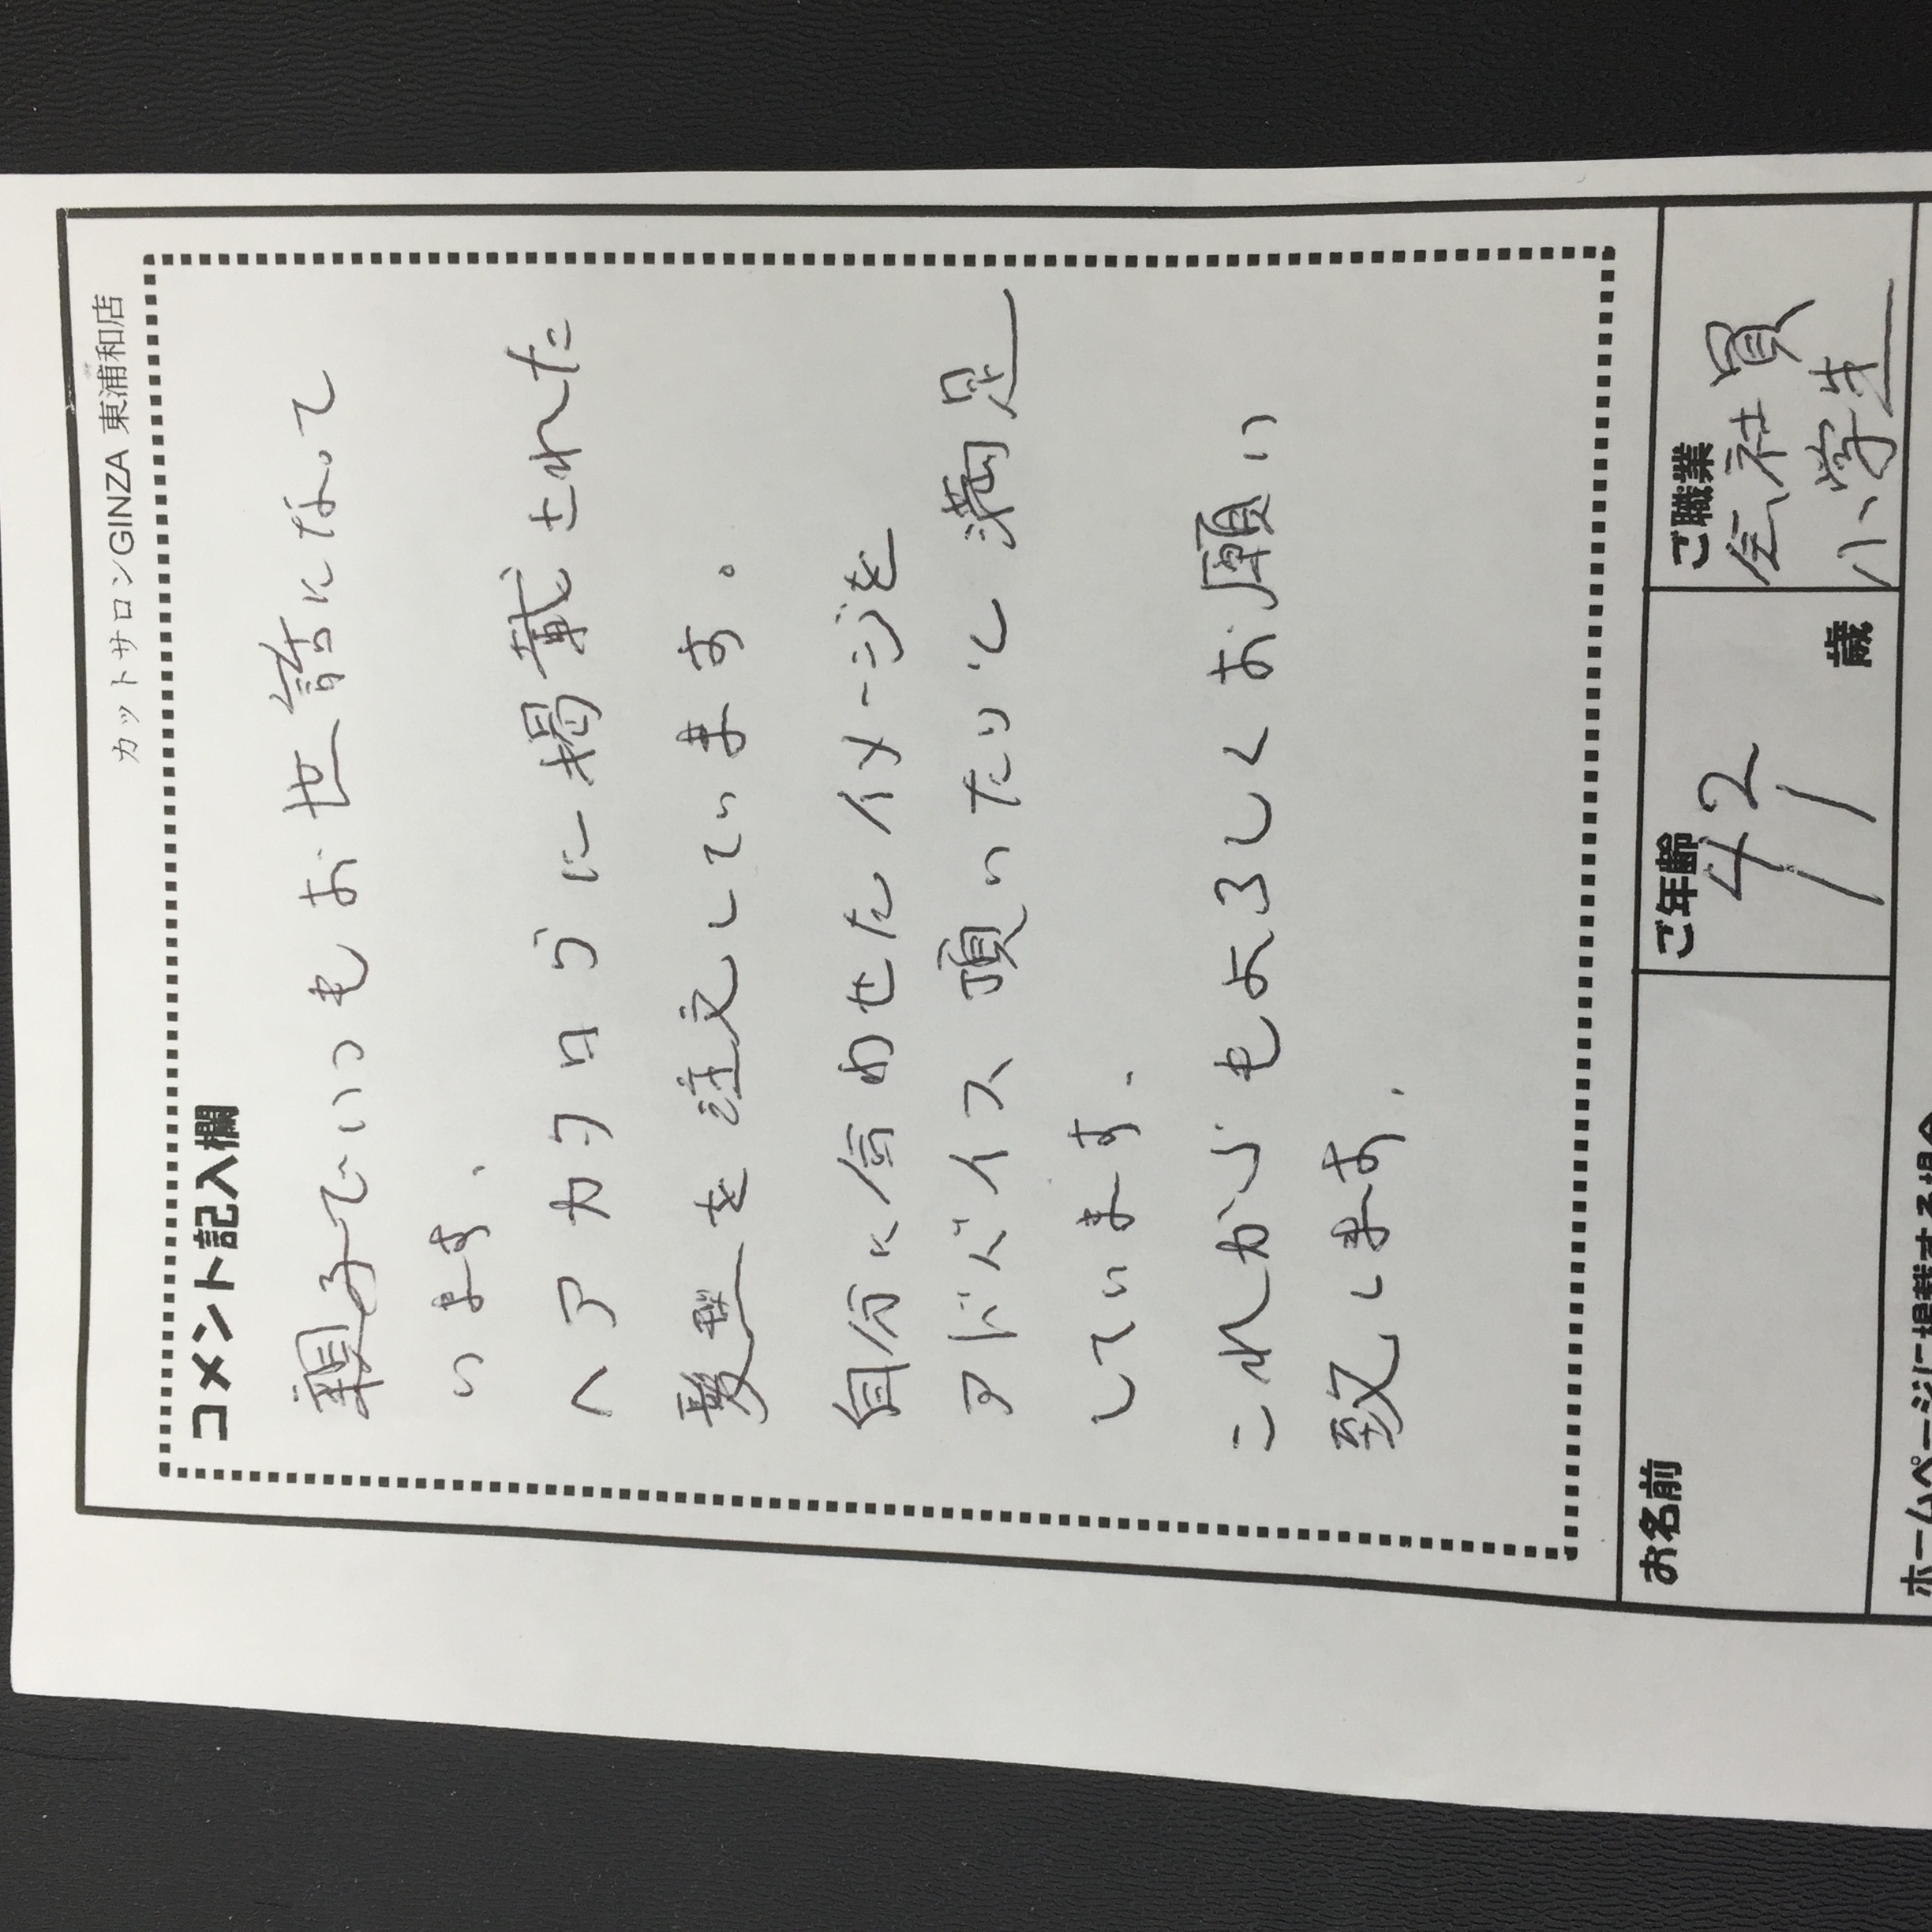 カットサロンGINZA 東浦和店
コメント記入欄
親子でいつもお世話になって
います、
ヘアカタログに掲載された
髪型を注文しています。
自分に合わせたイメージを
アドバイス頂いたりして満足
しています.
これからもよろしくお願い
致します.
お名前
ご年齢
42
11
歳
ご職業
会社員
小学生
ホームページに掲載する場合